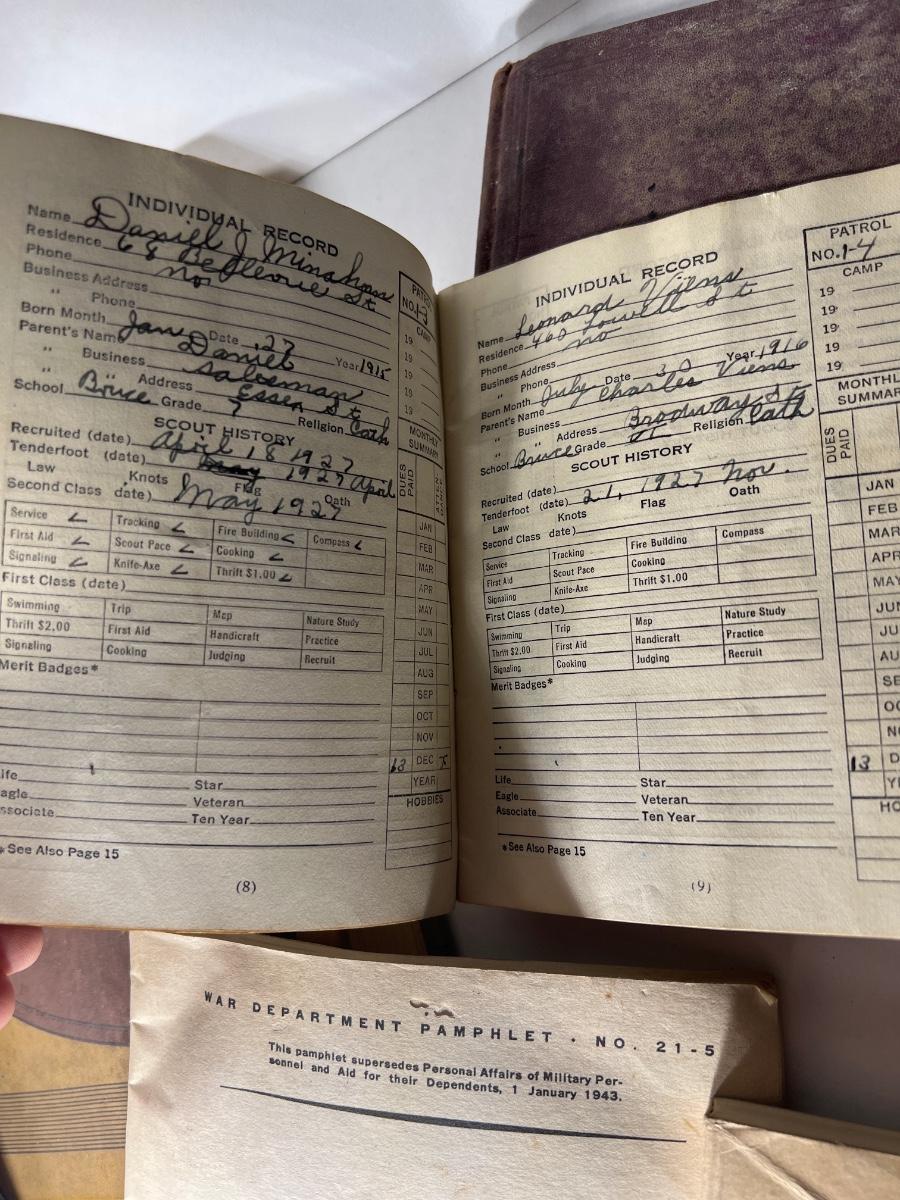 INDIVIDUAL RECORD
Name Daniel J Minahan
Residence 68 Bellevue St
Phone no
Business Address
" Phone
Born Month Jan Date 27 Year 1915
Parent's Name Daniel
" Business salesman
" Address Essex St
School Bruce Grade 7 Religion Cath
SCOUT HISTORY
Recruited (date) April 18 1927
Tenderfoot (date) 1927 April
Law Knots Flag Oath
Second Class date) May 1927
Service Tracking Fire Building Compass
First Aid Scout Pace Cooking
Signaling Knife-Axe Thrift $1.00
First Class (date)
Swimming Trip Map Nature Study
Thrift $2.00 First Aid Handicraft Practice
Signaling Cooking Judging Recruit
Merit Badges*
ife Star
agle Veteran
ssociate Ten Year
*See Also Page 15
(8)
NO. 1-3
CAMP
19
19
19
19
MONTHLY
SUMMARY
DUES PAID
JAN
FEB
MAR
APR
MAY
JUN
JUL
AUG
SEP
OCT
NOV
13 DEC
YEAR
HOBBIES
INDIVIDUAL RECORD
Name Leonard Viens
Residence 460 Lowell St
Phone no
Business Address
" Phone
Born Month July Date 30 Year 1916
Parent's Name Charles Viens
" Business
" Address Brodway St
School Bruce Grade VI Religion Cath
SCOUT HISTORY
Recruited (date)
Tenderfoot (date) 21, 1927 Nov.
Law Knots Flag Oath
Second Class date)
Service Tracking Fire Building Compass
First Aid Scout Pace Cooking
Signaling Knife-Axe Thrift $1.00
First Class (date)
Swimming Trip Map Nature Study
Thrift $2.00 First Aid Handicraft Practice
Signaling Cooking Judging Recruit
Merit Badges*
Life Star
Eagle Veteran
Associate Ten Year
*See Also Page 15
(9)
PATROL
NO. 1-4
CAMP
19
19
19
19
19
MONTHL
SUMMAR
DUES PAID
JAN
FEB
MAR
APR
MAY
JUN
JU
AU
SE
OC
N
13 D
Y
HO
WAR DEPARTMENT PAMPHLET · NO. 21-5
This pamphlet supersedes Personal Affairs of Military Per-
sonnel and Aid for their Dependents, 1 January 1943.